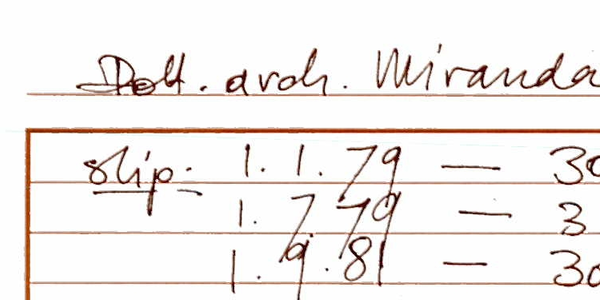 Dott. arch. Miranda
stip: 1. 1. 79 — 30
1. 7. 79 — 3
1. 9. 81 — 30